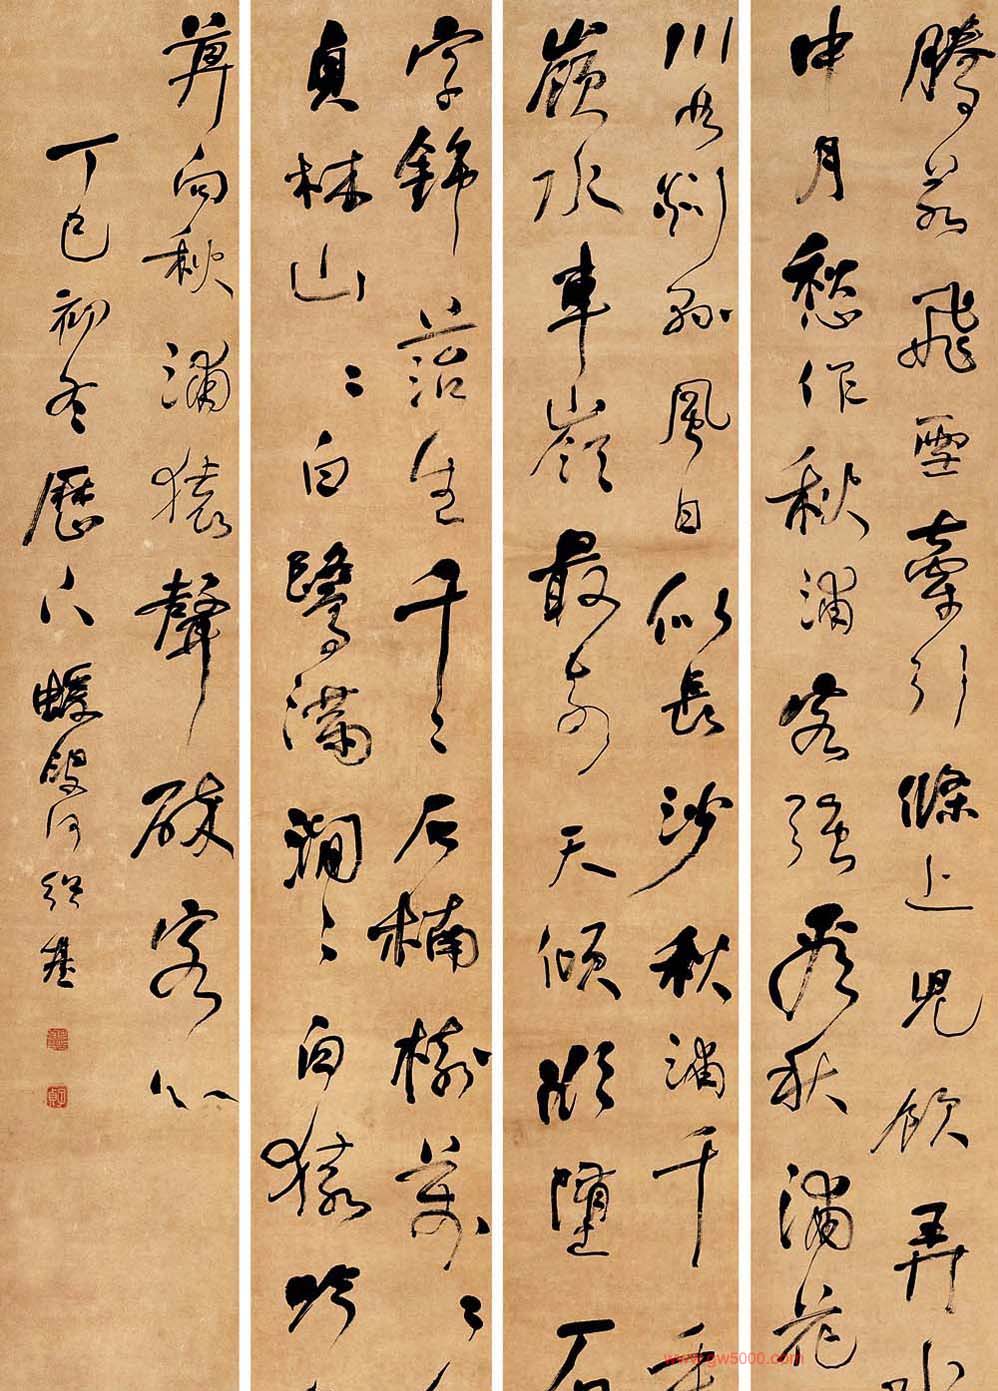 騰若飛雪牽引條上兒飲弄水
中月愁作秋浦客強看秋浦花
川如剡縣風日似長沙秋浦千重
嶺水車嶺最奇天傾欲墮石
字錦菭生千〻石楠樹萬〻
貞林山〻白鷺滿澗〻白猿吟
莫向秋浦猿聲碎客心
丁巳初冬歷下蝯叟何紹基
www.gw5000.com